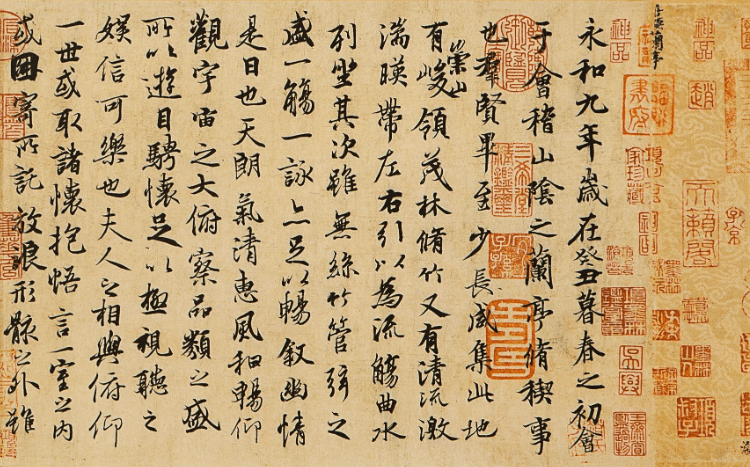 永和九年歲在癸丑暮春之初會
于會稽山陰之蘭亭脩稧事
也羣賢畢至少長咸集此地
有崇山峻領茂林脩竹又有清流激
湍暎帶左右引以為流觴曲水
列坐其次雖無絲竹管弦之
盛一觴一詠亦足以暢叙幽情
是日也天朗氣清惠風和暢仰
觀宇宙之大俯察品類之盛
所以遊目騁懷足以極視聽之
娛信可樂也夫人之相與俯仰
一世或取諸懷抱悟言一室之内
或因寄所託放浪形骸之外雖